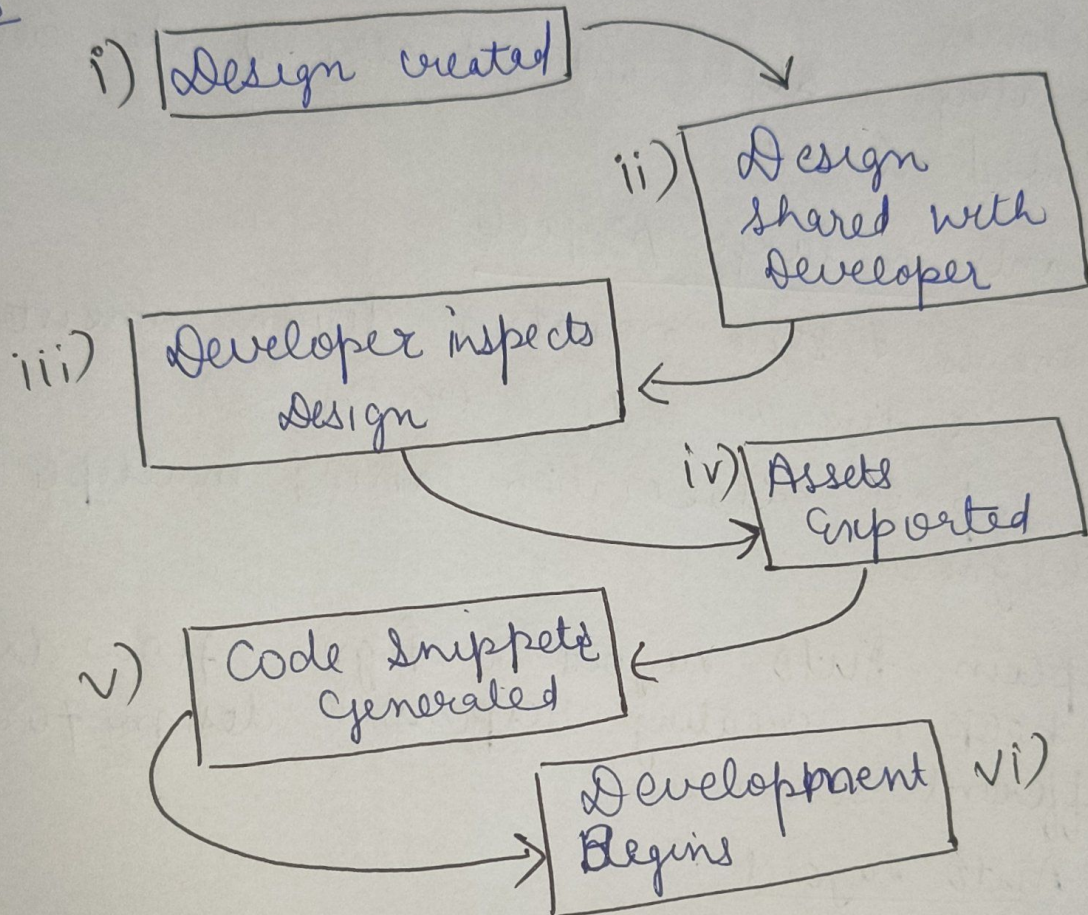 i) Design created
ii) Design
shared with
Developer
iii) Developer inspects
Design
iv) Assets
Exported
v) Code Snippets
Generated
vi) Development
Begins